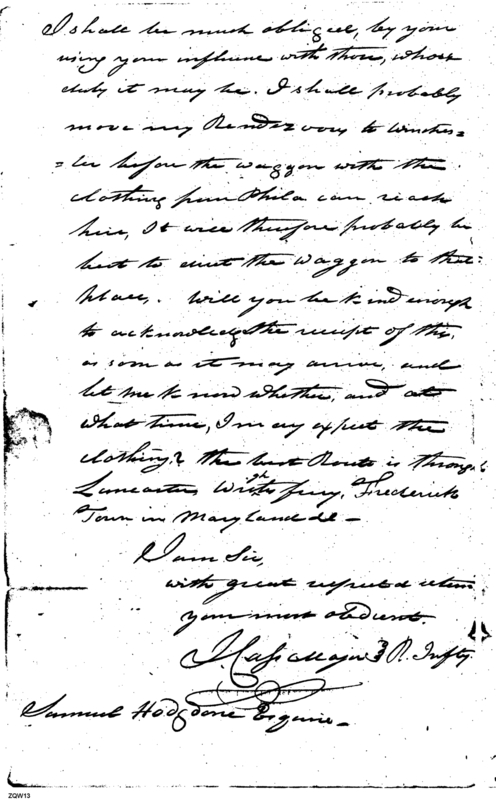 I shall be much obliged, by your
using your influence with those, whose
duty it may be. I shall probably
move my Rendezvous to Winches=
=ter before the waggon with the
clothing from Phila can reach
here, It will therefore probably be
best to direct the waggon to that
place. Will you be kind enough
to acknowledge the receipt of this,
as soon as it may arrive, and
let me know whether, and at
what time, I may expect the
clothing? the best Route is through
Lancaster, Wrights ferry, Frederick
Town in Maryland &c —
I am Sir,
with great respect & esteem
your most obedient.
Major 3 R. Infty.
Samuel Hodgdon Esquire —
ZQW13